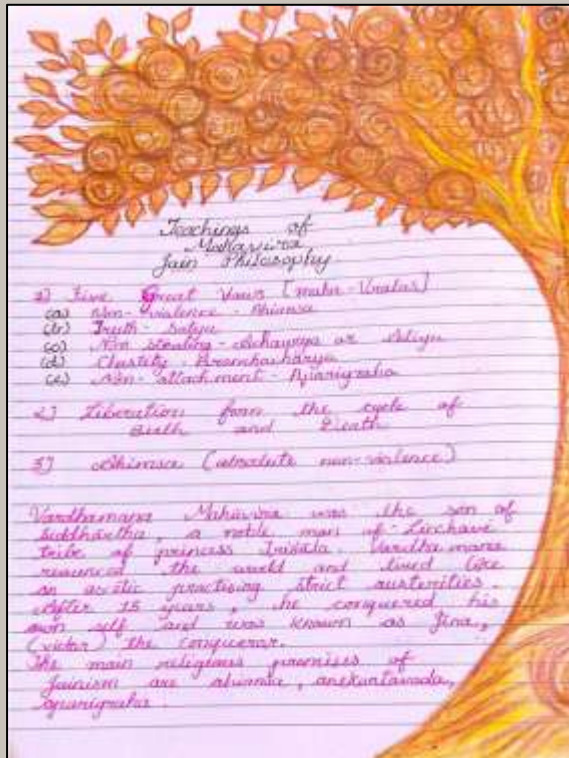 Teachings of
Mahavira
Jain Philosophy
1) Five Great Vows [maha-Vratas]
(a) Non-violence - Ahimsa
(b) Truth - Satya
(c) Non stealing - Achaurya or
(d) Chastity - Bramhacharya
(e) Non-attachment - Aparigraha
2] Liberation form the cycle of
Birth and Death
3] Ahimsa (absolute non-violence)
Vardhamana Mahavira was the son of
Siddhartha, a noble man of
tribe of princess Trisala. Vardhamana
the world and lived like
an ascetic practising strict austerities.
After 13 years, he conquered his
own self and was known as Jina,
(victor) the conqueror.
The main religious premises of
Jainism are ahimsa, anekantavada,
aparigraha.